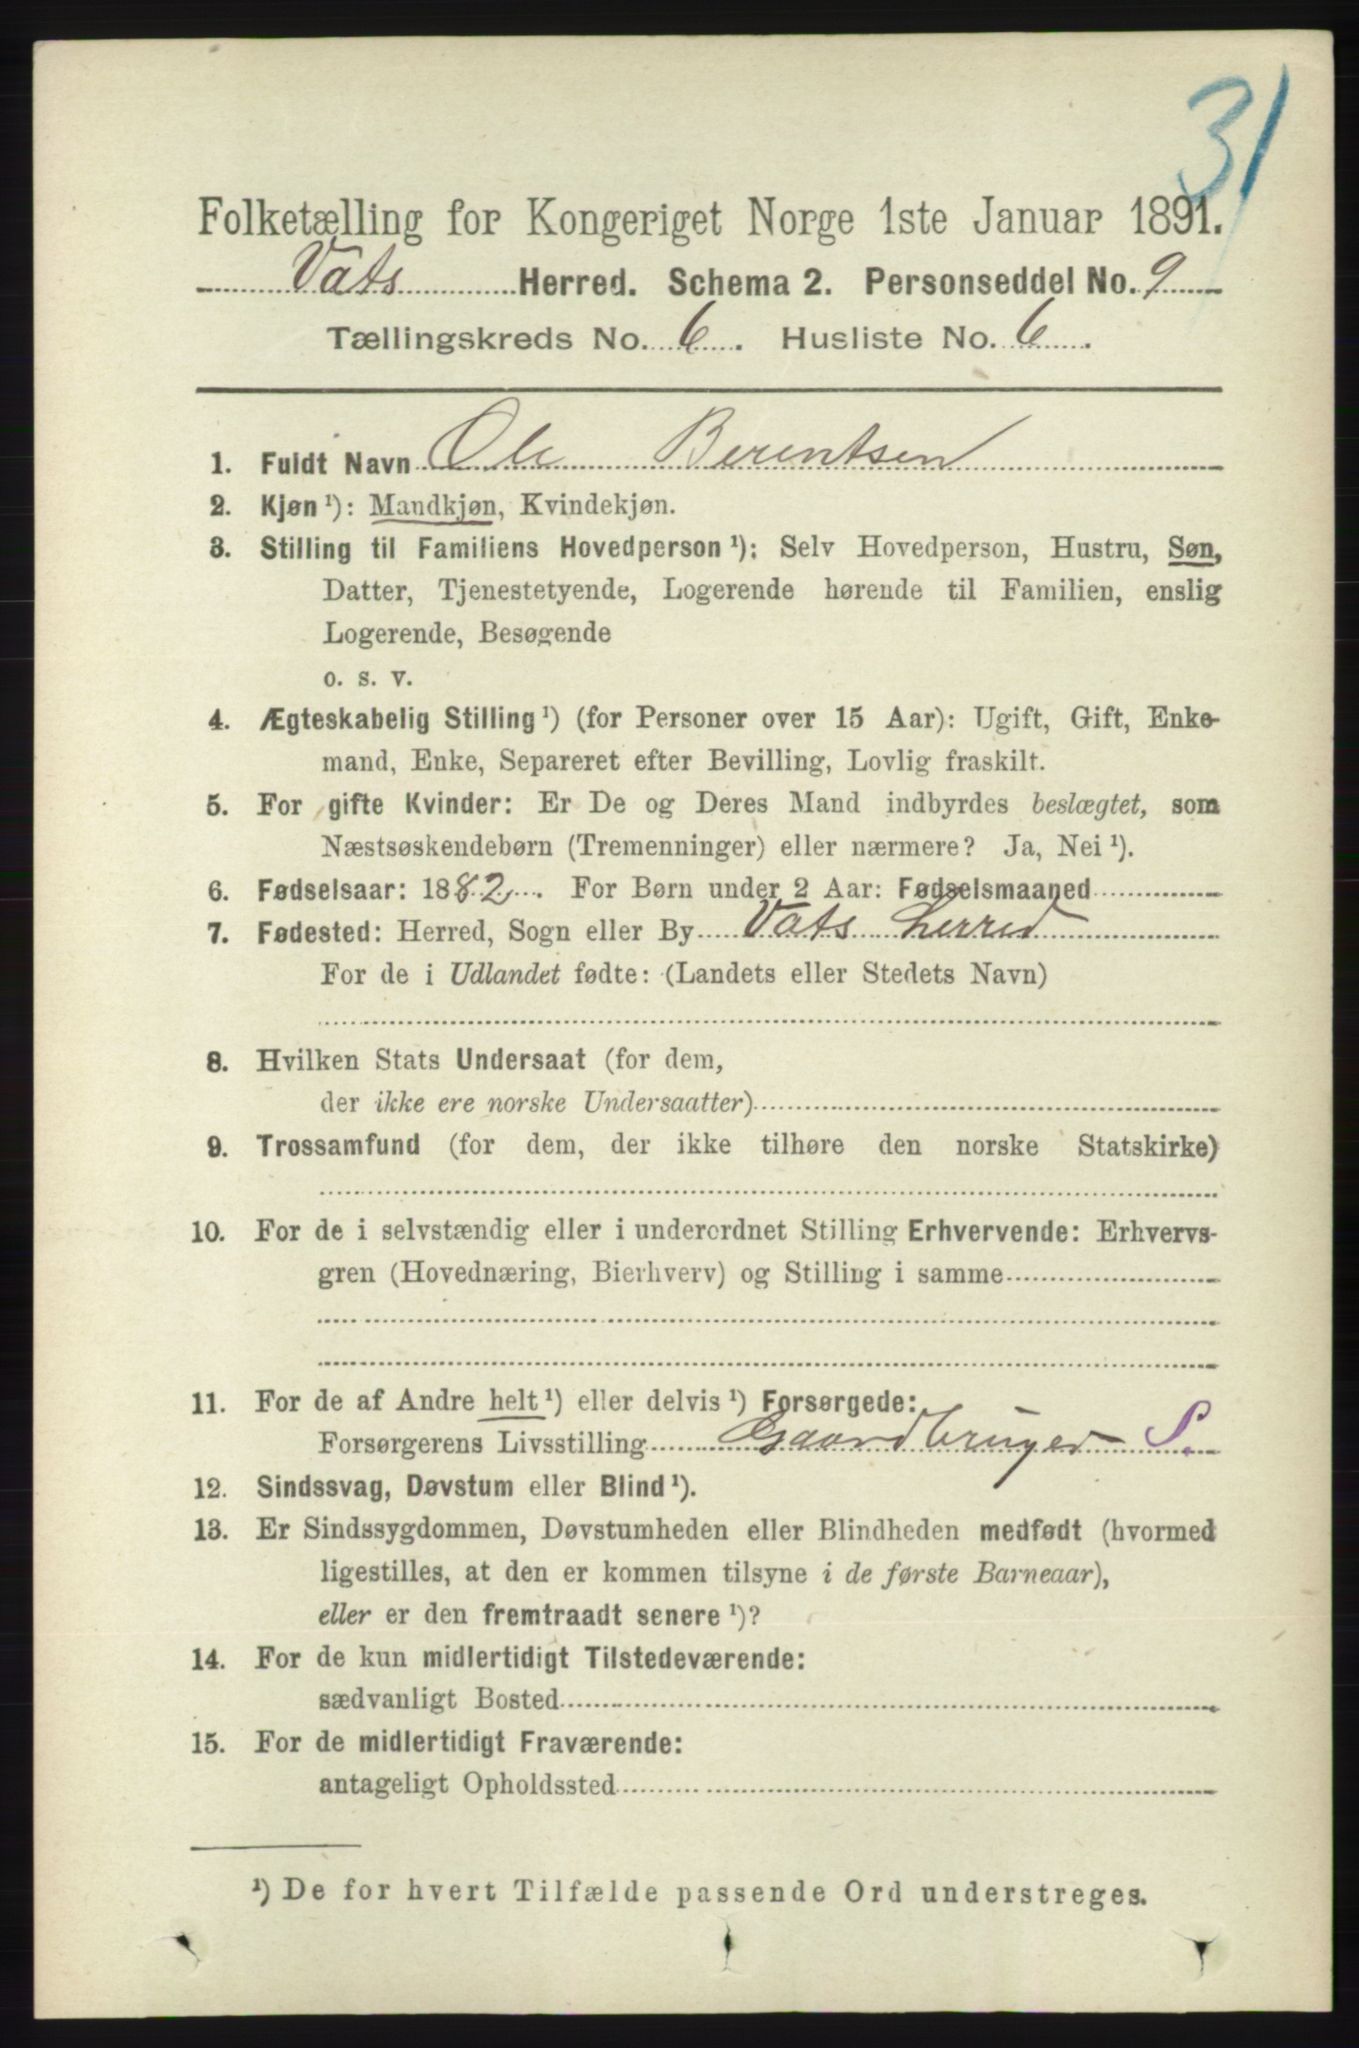 31
Folketælling for Kongeriget Norge 1ste Januar 1891.
Vats Herred. Schema 2. Personseddel No. 9
Tællingskreds No. 6. Husliste No. 6.
1. Fuldt Navn Ole Berentsen
2. Kjøn ¹): Mandkjøn, Kvindekjøn.
3. Stilling til Familiens Hovedperson ¹): Selv Hovedperson, Hustru, Søn,
Datter, Tjenestetyende, Logerende hørende til Familien, enslig
Logerende, Besøgende
o. s. v.
4. Ægteskabelig Stilling ¹) (for Personer over 15 Aar): Ugift, Gift, Enke-
mand, Enke, Separeret efter Bevilling, Lovlig fraskilt.
5. For gifte Kvinder: Er De og Deres Mand indbyrdes beslægtet, som
Næstsøskendebørn (Tremenninger) eller nærmere? Ja, Nei ¹).
6. Fødselsaar: 1882. For Børn under 2 Aar: Fødselsmaaned
7. Fødested: Herred, Sogn eller By Vats Herred
For de i Udlandet fødte: (Landets eller Stedets Navn)
8. Hvilken Stats Undersaat (for dem,
der ikke ere norske Undersaatter)
9. Trossamfund (for dem, der ikke tilhøre den norske Statskirke)
10. For de i selvstændig eller i underordnet Stilling Erhvervende: Erhvervs-
gren (Hovednæring, Bierhverv) og Stilling i samme
11. For de af Andre helt ¹) eller delvis ¹) Forsørgede:
Forsørgerens Livsstilling Gaardbruger S.
12. Sindssvag, Døvstum eller Blind ¹).
13. Er Sindssygdommen, Døvstumheden eller Blindheden medfødt (hvormed
ligestilles, at den er kommen tilsyne i de første Barneaar),
eller er den fremtraadt senere ¹)?
14. For de kun midlertidigt Tilstedeværende:
sædvanligt Bosted
15. For de midlertidigt Fraværende:
antageligt Opholdssted
¹) De for hvert Tilfælde passende Ord understreges.